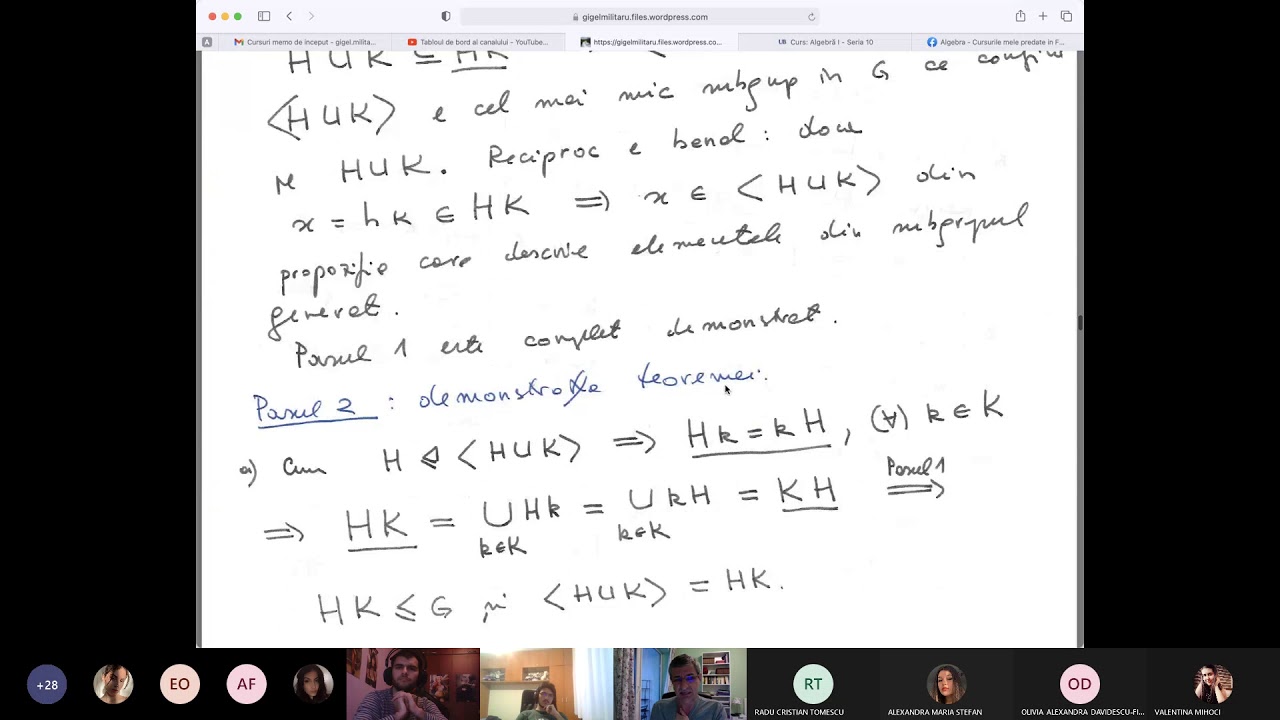 gigelmilitaru.files.wordpress.com
A
Cursuri memo de inceput - gigel.milita...
Tabloul de bord al canalului - YouTube...
https://gigelmilitaru.files.wordpress.co...
UB Curs: Algebră I - Seria 10
Algebra - Cursurile mele predate in F...
H U K ⊆ HK
<HUK> e cel mai mic subgrup in G ce conține
pe HUK. Reciproc e banal: daca
x = hk ∈ HK ⟹ x ∈ <HUK> din
propoziția care descrie elementele din subgrupul
generat.
Pasul 1 este complet demonstrat.
Pasul 2 : demonstrația teoremei.
a) Cum H ⊴ <HUK> ⟹ Hk = kH, (∀) k ∈ K
⟹ HK = ∪ Hk = ∪ kH = KH ⟹ Pasul 1
k∈K k∈K
HK ≤ G și <HUK> = HK.
+28
EO
AF
RT
OD
RADU CRISTIAN TOMESCU
ALEXANDRA MARIA STEFAN
OLIVIA ALEXANDRA DAVIDESCU-FI...
VALENTINA MIHOCI